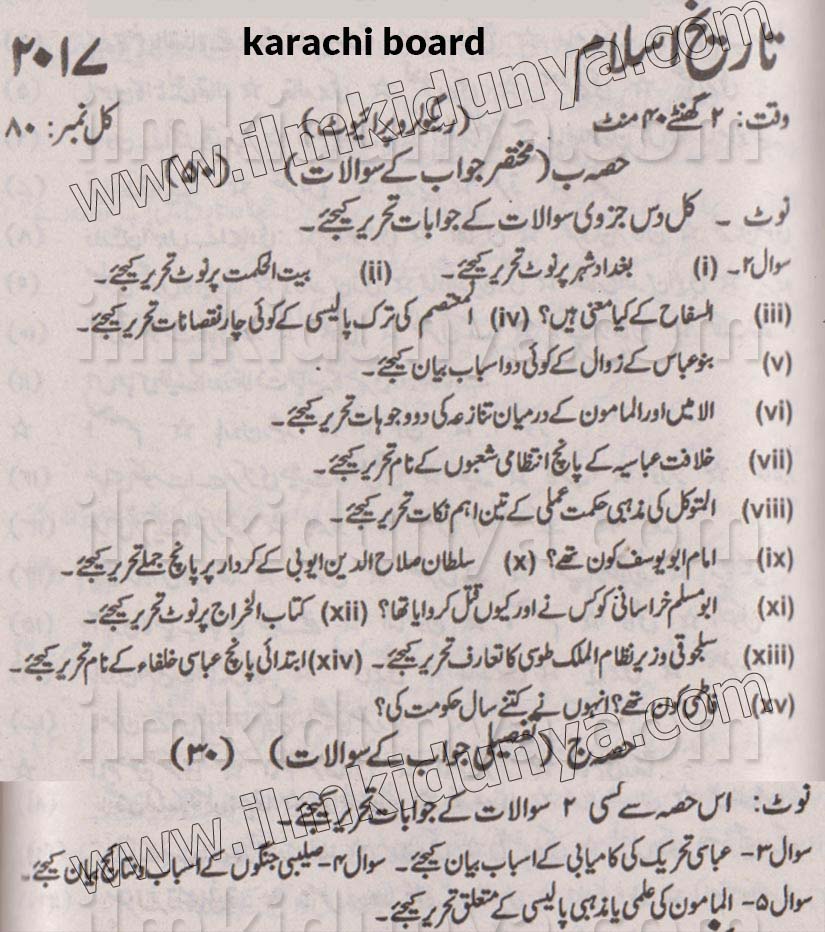 karachi board
تاریخ اسلام ۲۰۱۷
وقت: ۲ گھنٹے ۴۰ منٹ (ریگولر و پرائیوٹ) کل نمبر: ۸۰
حصہ ب (مختصر جواب کے سوالات) (۵۰)
نوٹ ۔ کل دس جزوی سوالات کے جوابات تحریر کیجئے۔
سوال ۲۔ (i) بغداد شہر پر نوٹ تحریر کیجئے۔ (ii) بیت الحکمت پر نوٹ تحریر کیجئے۔
(iii) السفاح کے کیا معنی ہیں؟ (iv) المعتصم کی ترک پالیسی کے کوئی چار نقصانات تحریر کیجئے۔
(v) بنو عباس کے زوال کے کوئی دو اسباب بیان کیجئے۔
(vi) الامیں اور المامون کے درمیان تنازعہ کی دو وجوہات تحریر کیجئے۔
(vii) خلافت عباسیہ کے پانچ انتظامی شعبوں کے نام تحریر کیجئے۔
(viii) المتوکل کی مذہبی حکمت عملی کے تین اہم نکات تحریر کیجئے۔
(ix) امام ابو یوسف کون تھے؟ (x) سلطان صلاح الدین ایوبی کے کردار پر پانچ جملے تحریر کیجئے۔
(xi) ابو مسلم خراسانی کو کس نے اور کیوں قتل کروایا تھا؟ (xii) کتاب الخراج پر نوٹ تحریر کیجئے۔
(xiii) سلجوقی وزیر نظام الملک طوسی کا تعارف تحریر کیجئے۔ (xiv) ابتدائی پانچ عباسی خلفاء کے نام تحریر کیجئے۔
(xv) فاطمی کون تھے؟ انہوں نے کتنے سال حکومت کی؟
حصہ ج (تفصیلی جواب کے سوالات) (۳۰)
نوٹ: اس حصہ سے کسی ۲ سوالات کے جوابات تحریر کیجئے۔
سوال ۳۔ عباسی تحریک کی کامیابی کے اسباب بیان کیجئے۔ سوال ۴۔ صلیبی جنگوں کے اسباب و نتائج بیان کیجئے۔
سوال ۵۔ المامون کی علمی یا مذہبی پالیسی کے متعلق تحریر کیجئے۔
www.ilmkidunya.com
www.ilmkidunya.com
ilmkidunya.com
ilmkidunya.com
ilmkidunya.com
ilmkidunya.com
ilmkidunya.com